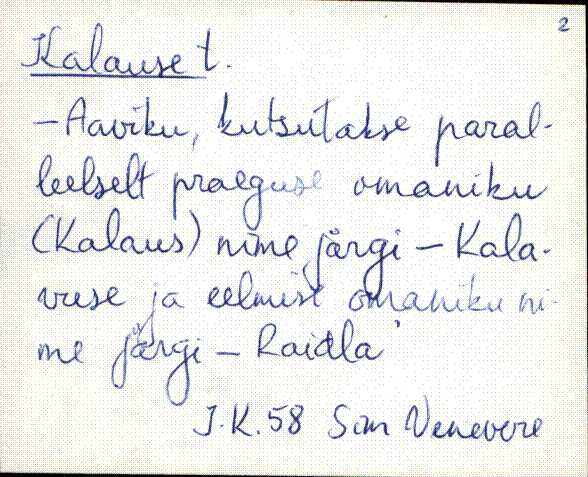 2
Kalause t.
– Aaviku, kutsutakse paral-
leelselt praeguse omaniku
(Kalaus) nime järgi – Kala-
vuse ja eelmise omaniku ni-
me järgi – Raidla'
J.K. 58 Sim Venevere